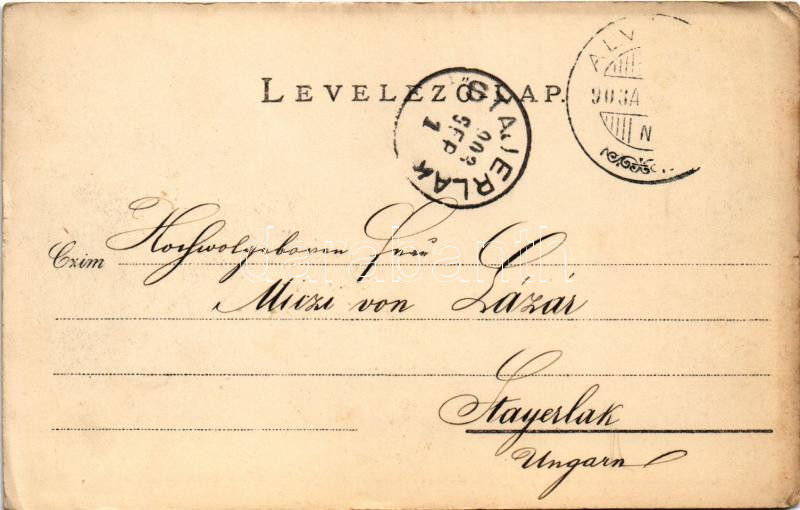 LEVELEZŐ-LAP.
STAJERLAK
903
SEP
1
ALV
903A
N
Czim Hochwolgeboren Frau
Miczi von Lázár
Stayerlak
Ungarn
darabanth